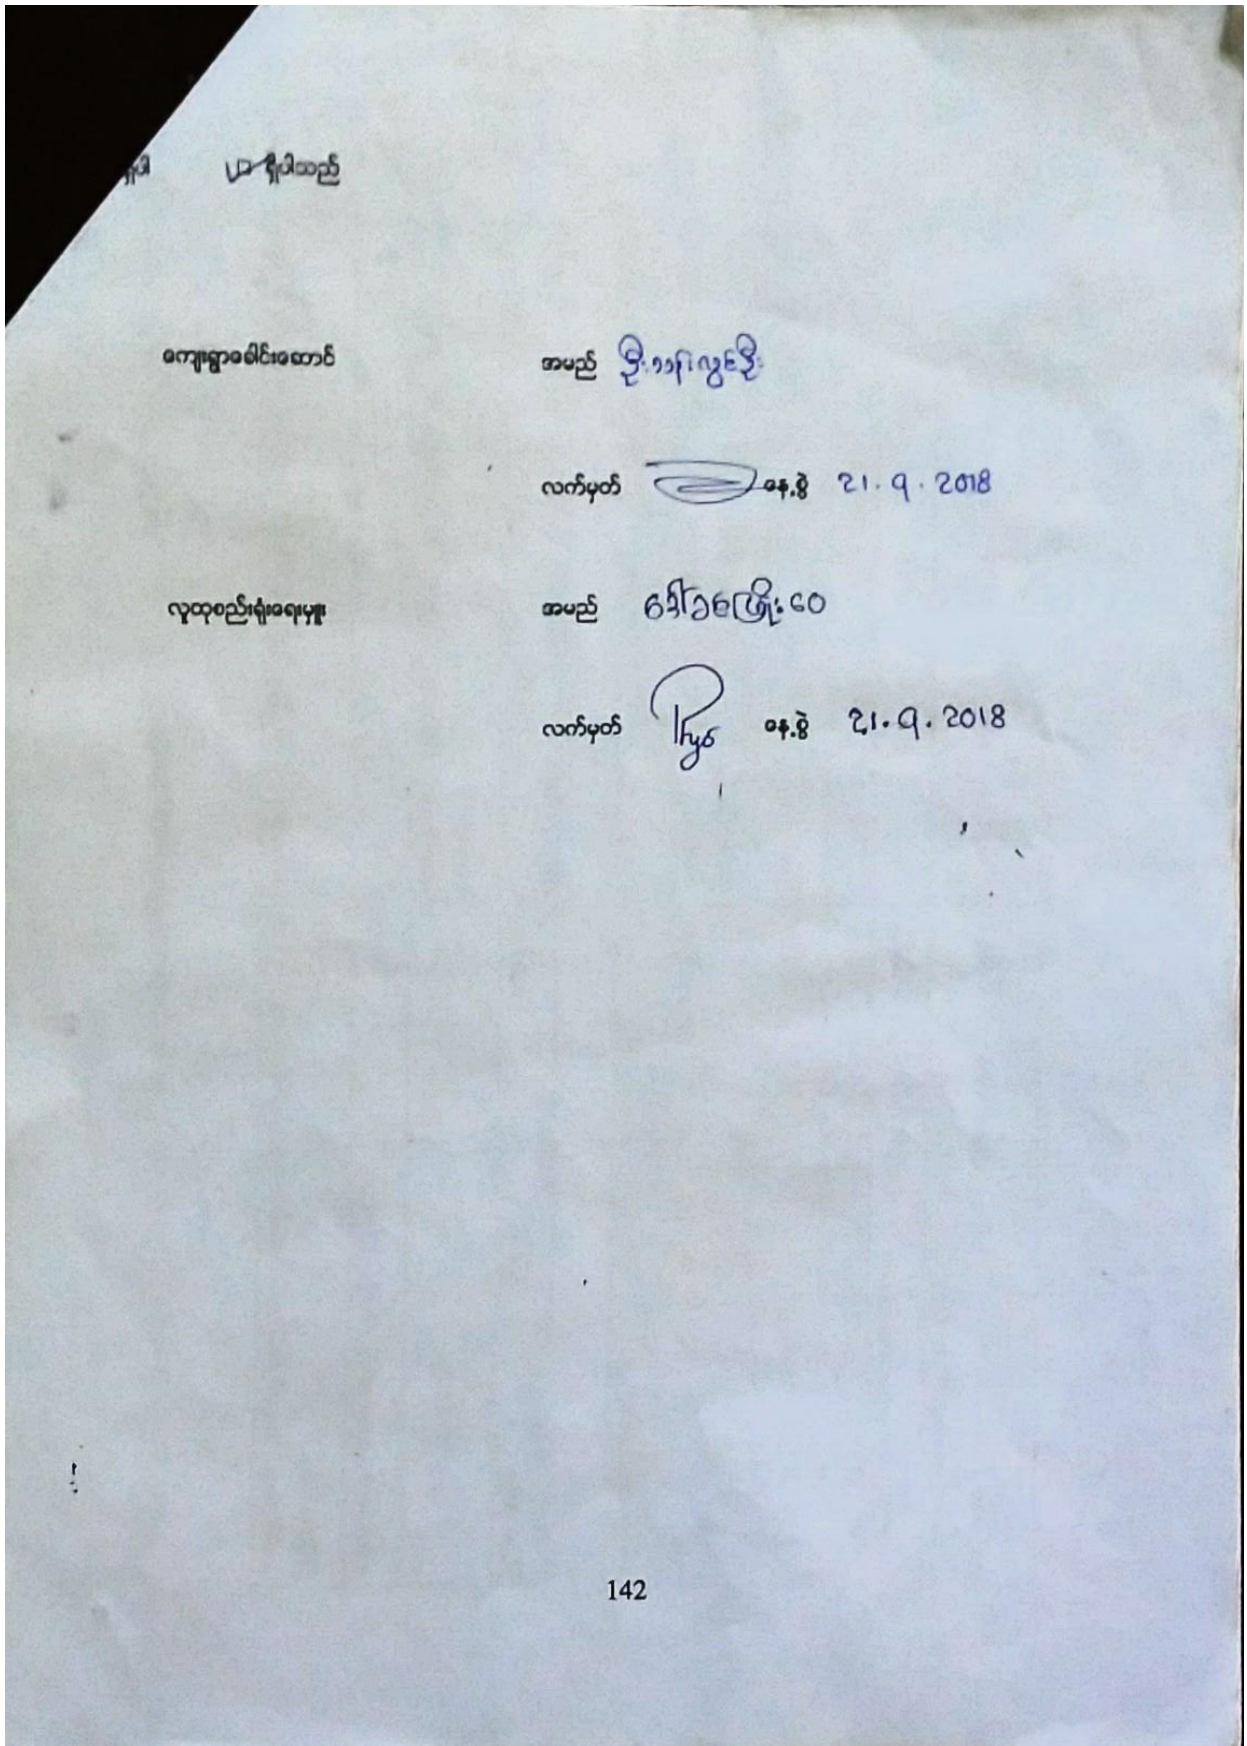 ရှိပါ ရှိပါသည်
ကျေးရွာခေါင်းဆောင် အမည် ဦးသန်းလွင်ဦး
လက်မှတ် နေ့စွဲ 21.9.2018
လူထုစည်းရုံးရေးမှူး အမည် ဒေါ်ခင်ဖြိုးဝေ
လက်မှတ် နေ့စွဲ 21.9.2018
142